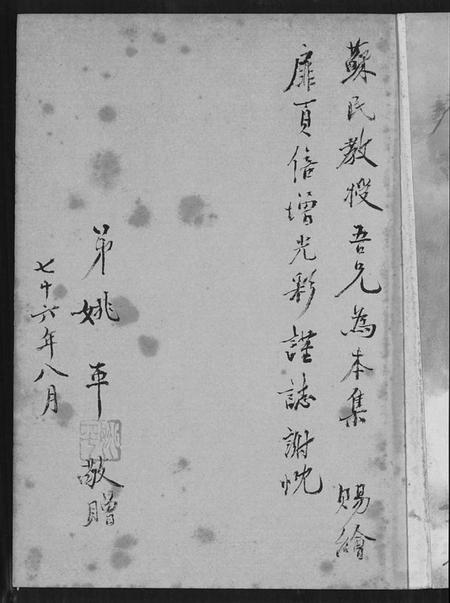 蘇民教授吾兄為本集 賜繪
扉頁倍增光彩謹誌謝忱
弟姚 敬贈
七十六年八月